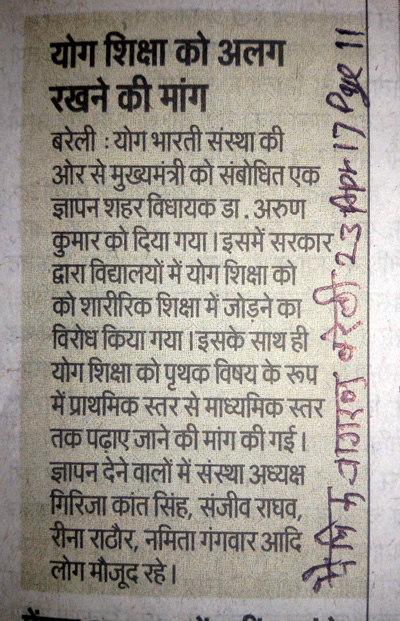 योग शिक्षा को अलग
रखने की मांग
बरेली : योग भारती संस्था की
ओर से मुख्यमंत्री को संबोधित एक
ज्ञापन शहर विधायक डा. अरुण
कुमार को दिया गया। इसमें सरकार
द्वारा विद्यालयों में योग शिक्षा को
को शारीरिक शिक्षा में जोड़ने का
विरोध किया गया। इसके साथ ही
योग शिक्षा को पृथक विषय के रूप
में प्राथमिक स्तर से माध्यमिक स्तर
तक पढ़ाए जाने की मांग की गई।
ज्ञापन देने वालों में संस्था अध्यक्ष
गिरिजा कांत सिंह, संजीव राघव,
रीना राठौर, नमिता गंगवार आदि
लोग मौजूद रहे।
दैनिक जागरण बरेली 23 Apr 17 Page 11